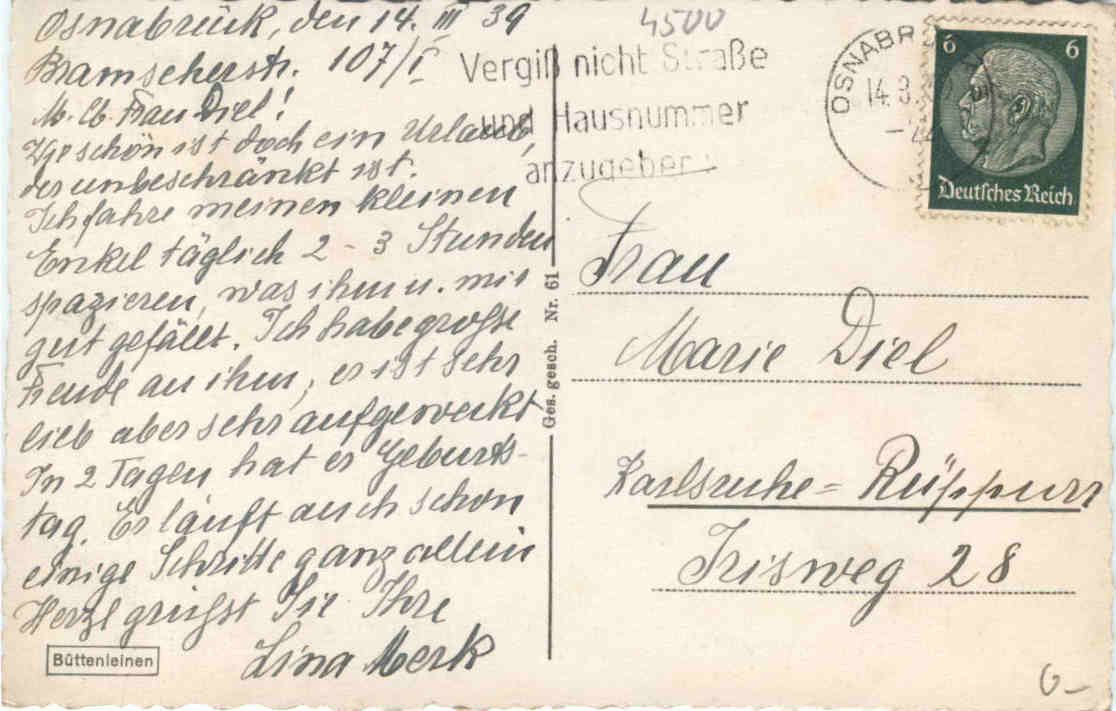 Osnabrück, den 14. III 39
Bramscherstr. 107/I
M. lb. Frau Diel!
Wie schön ist doch ein Urlaub,
der unbeschränkt ist.
Ich fahre meinen kleinen
Enkel täglich 2 - 3 Stunden
spazieren, was ihm u. mir
gut gefällt. Ich habe große
Freude an ihm, er ist sehr
lieb aber sehr aufgeweckt
In 2 Tagen hat er Geburts-
tag. Er läuft auch schon
einige Schritte ganz allein
Herzl grüßt Sie Ihre
Lina Merk
Büttenleinen
4500
Vergiß nicht Straße
und Hausnummer
anzugeben
OSNABR
14.3.
6 6
Deutsches Reich
Ges. gesch. Nr. 61
Frau
Marie Diel
Karlsruhe = Rüppurr
Irisweg 28
6-